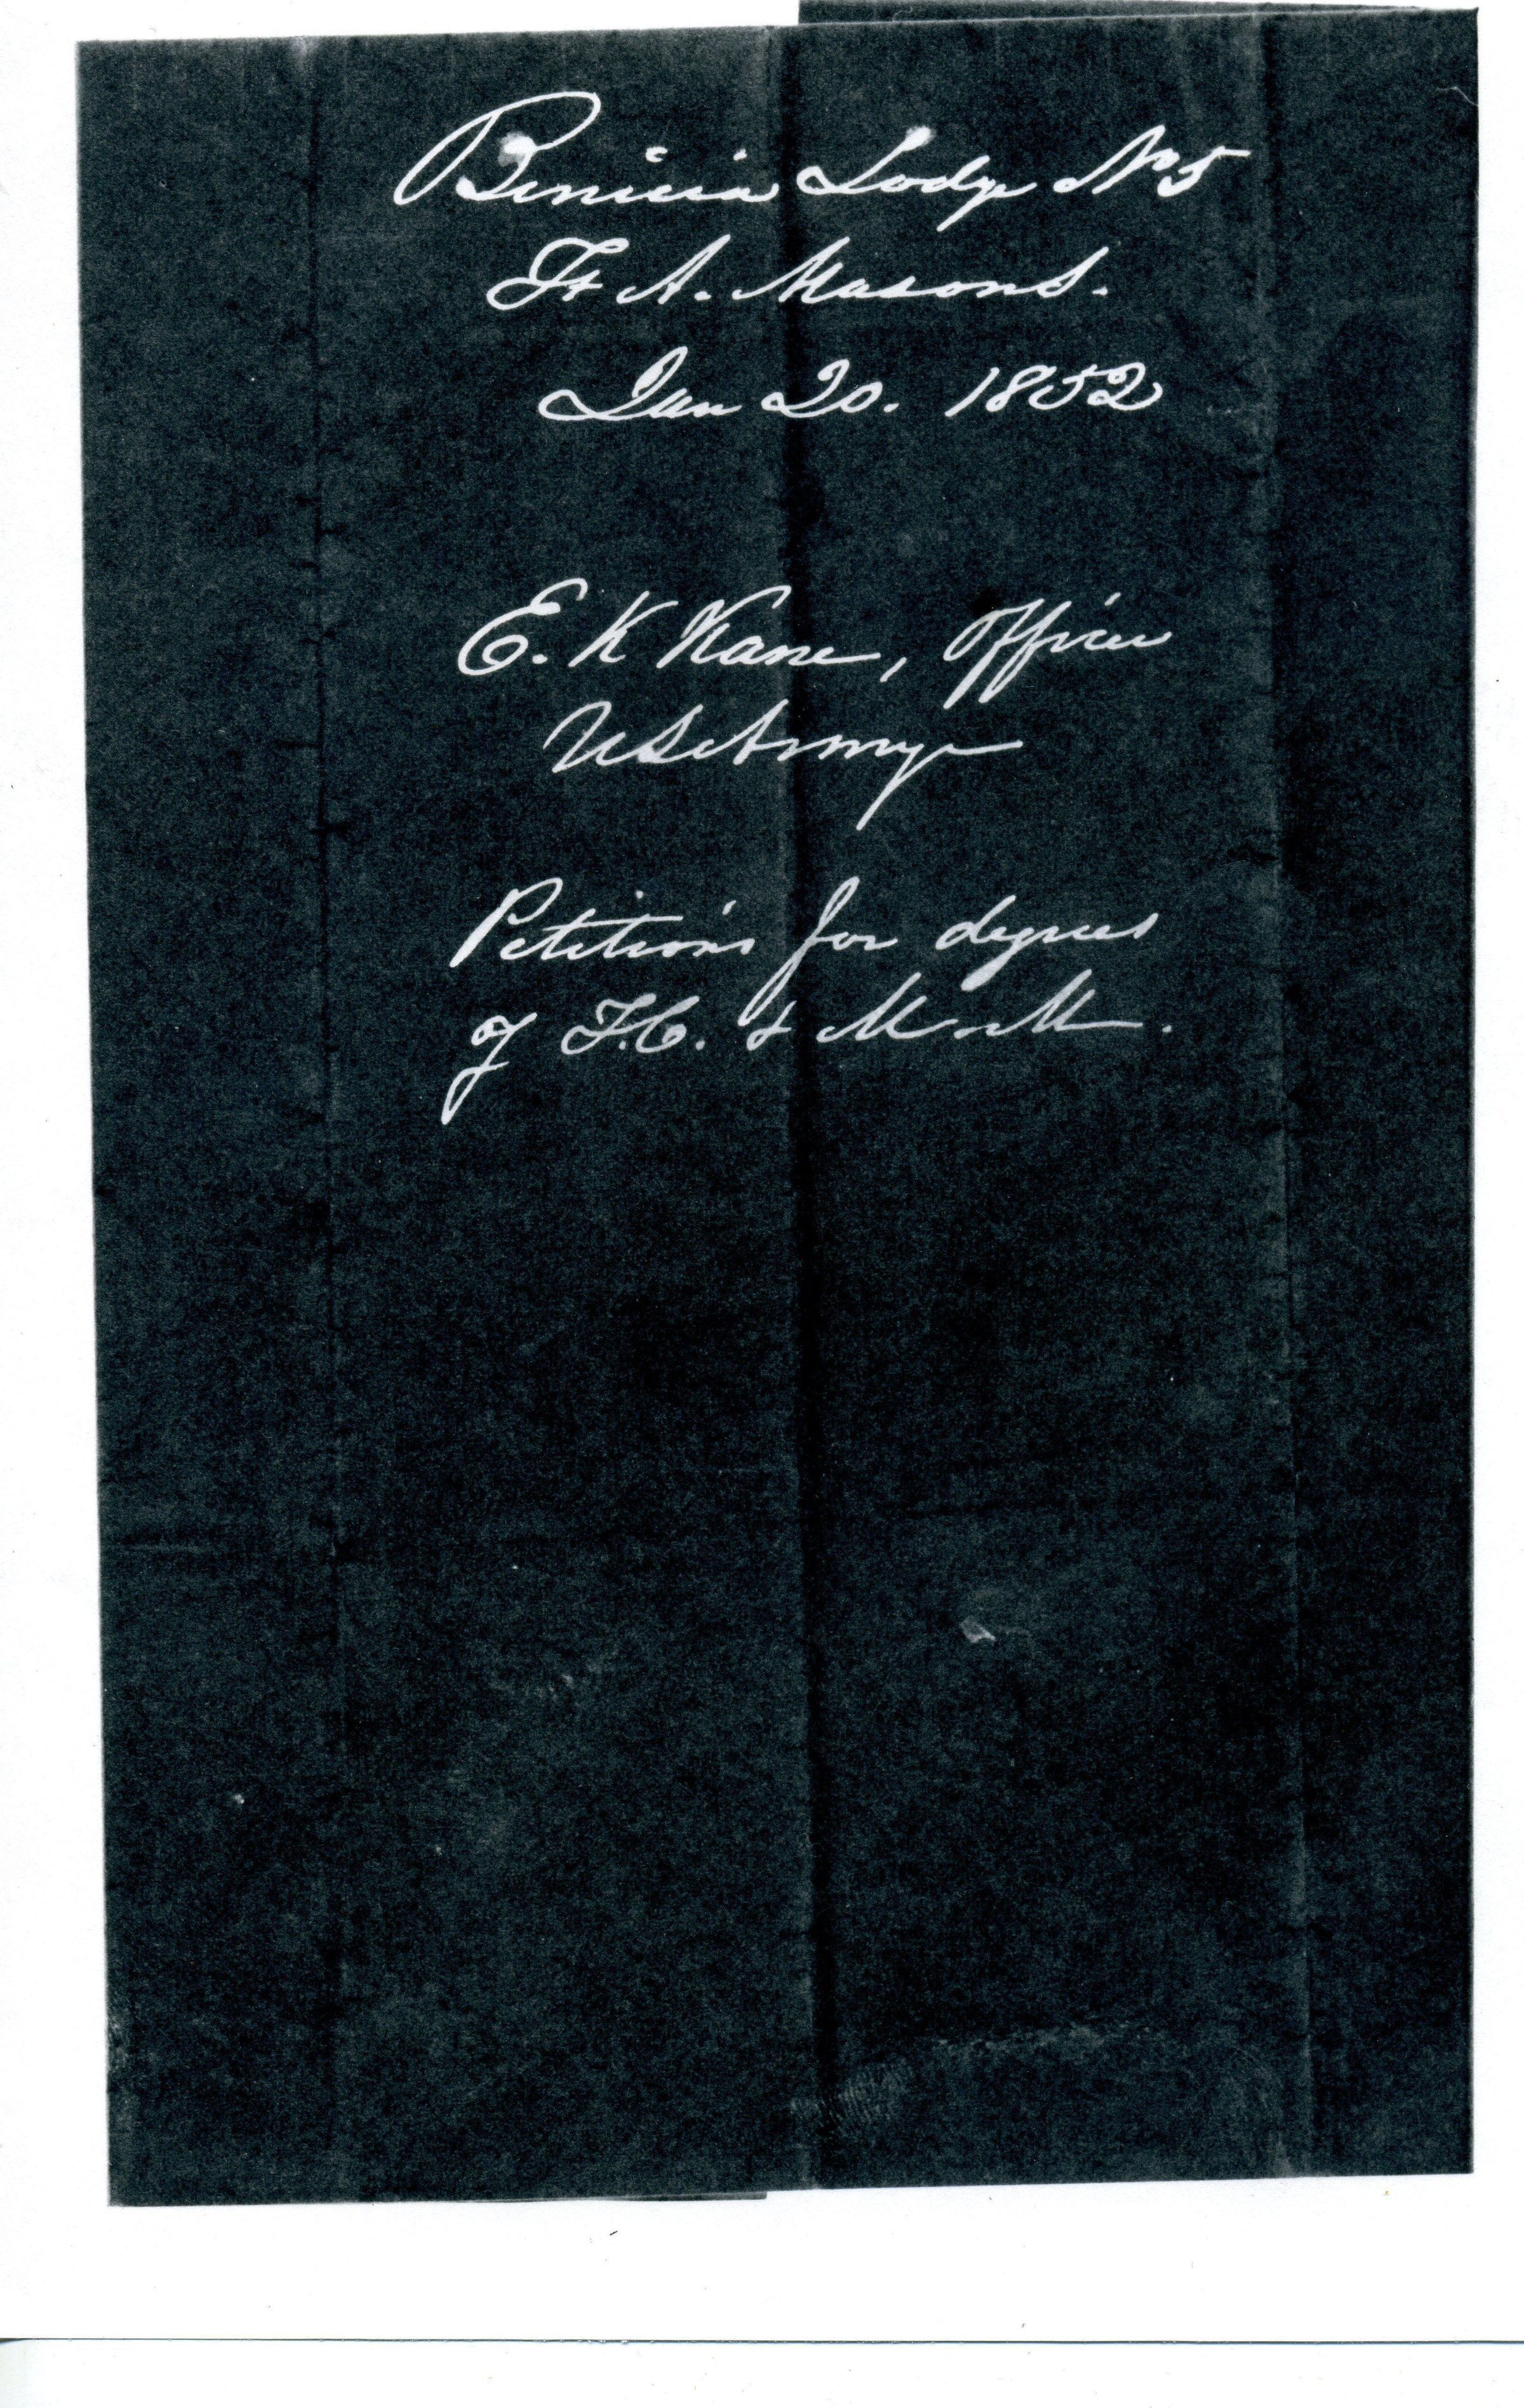 Benicia Lodge No 5
F & A. Masons.
Jan 20. 1852
E. K Kane, Officer
US Army
Petitions for degrees
of F.C. & M. M.